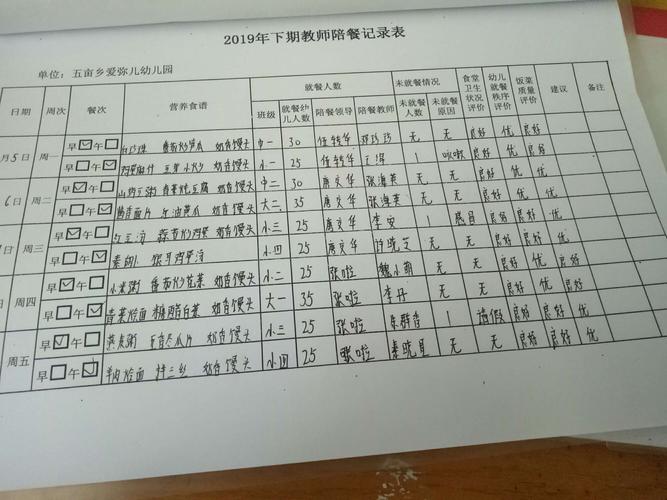 2019年下期教师陪餐记录表
单位：五亩乡爱弥儿幼儿园
日期 周次 餐次 营养食谱 就餐人数 未就餐情况 食堂卫生状况评价 幼儿就餐秩序评价 饭菜质量评价 建议 备注
班级 就餐幼儿人数 陪餐领导 陪餐教师 未就餐人数 未就餐原因
月5日 周一 早☑午☐ 番茄炒 瓜 奶香馒头 中一 30 任转华 无 无 良好 优 良好
早☐午☑ 奶香馒头 小一 25 任转华 1 咳嗽 良好 优 良好
6日 周二 早☑午☐ 山药豆粥 青菜炖豆腐 奶香馒头 中二 30 席文华 张海英 无 无 良好 优 良好
早☐午☑ 面片 瓜 奶香馒头 大二 35 席文华 张海英 无 无 良好 优 良好
日 周三 早☑午☐ 红豆汤 蒜苔炒鸡蛋 奶香馒头 小三 25 席文华 李安 1 感冒 良好 优 良好
早☐午☑ 鸡蛋汤 小四 25 席文华 许晓芝 无 无 优 良好 优
日 周四 早☑午☐ 小米粥 番茄炒花菜 奶香馒头 小二 25 张啦 魏小萌 无 无 优 良好 优
早☐午☑ 青菜烩面 糖醋白菜 奶香馒头 大一 35 张啦 李丹 无 无 良好 良好 优
周五 早☑午☐ 燕麦粥 冬瓜片 奶香馒头 小三 25 张啦 群香 1 请假 优 良好 优
早☐午☑ 羊肉烩面 拌三丝 奶香馒头 小四 25 张啦 秦晓星 无 无 良好 良好 优